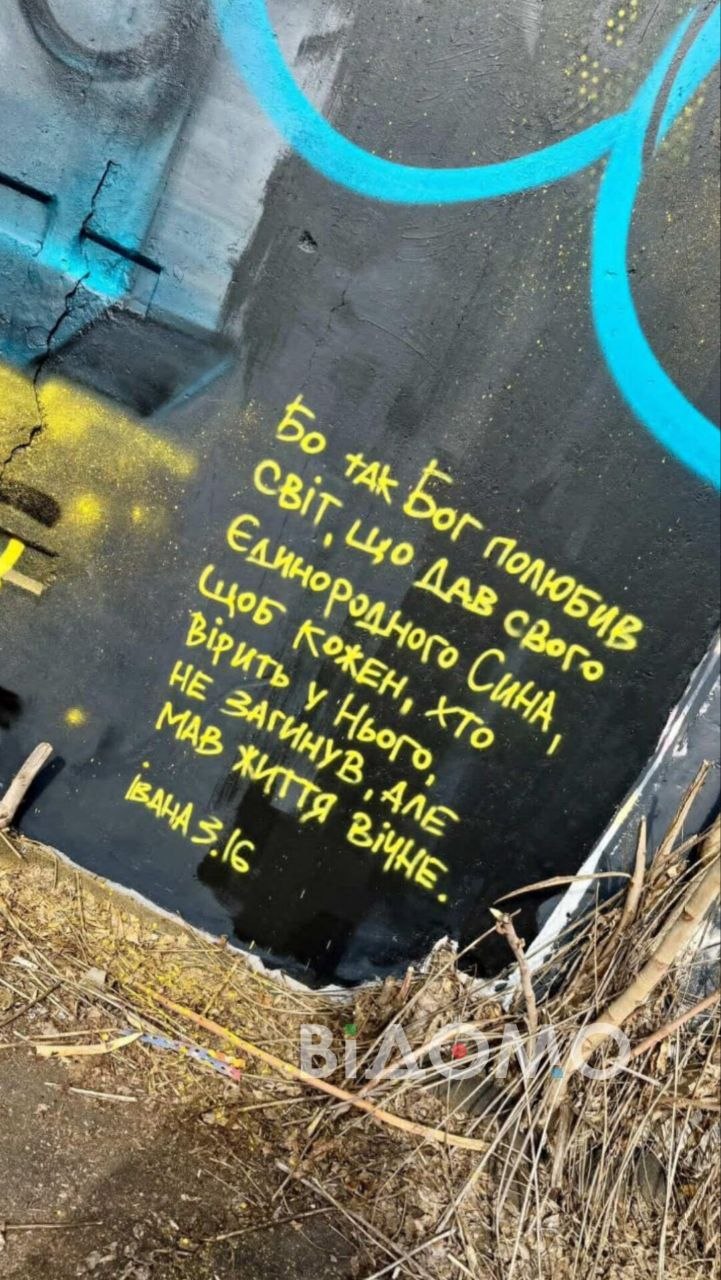 Бо так Бог полюбив
світ, що дав свого
Єдинородного Сина,
щоб кожен, хто
вірить у Нього,
не загинув, але
мав життя вічне.
Івана 3.16
ВіДОМО